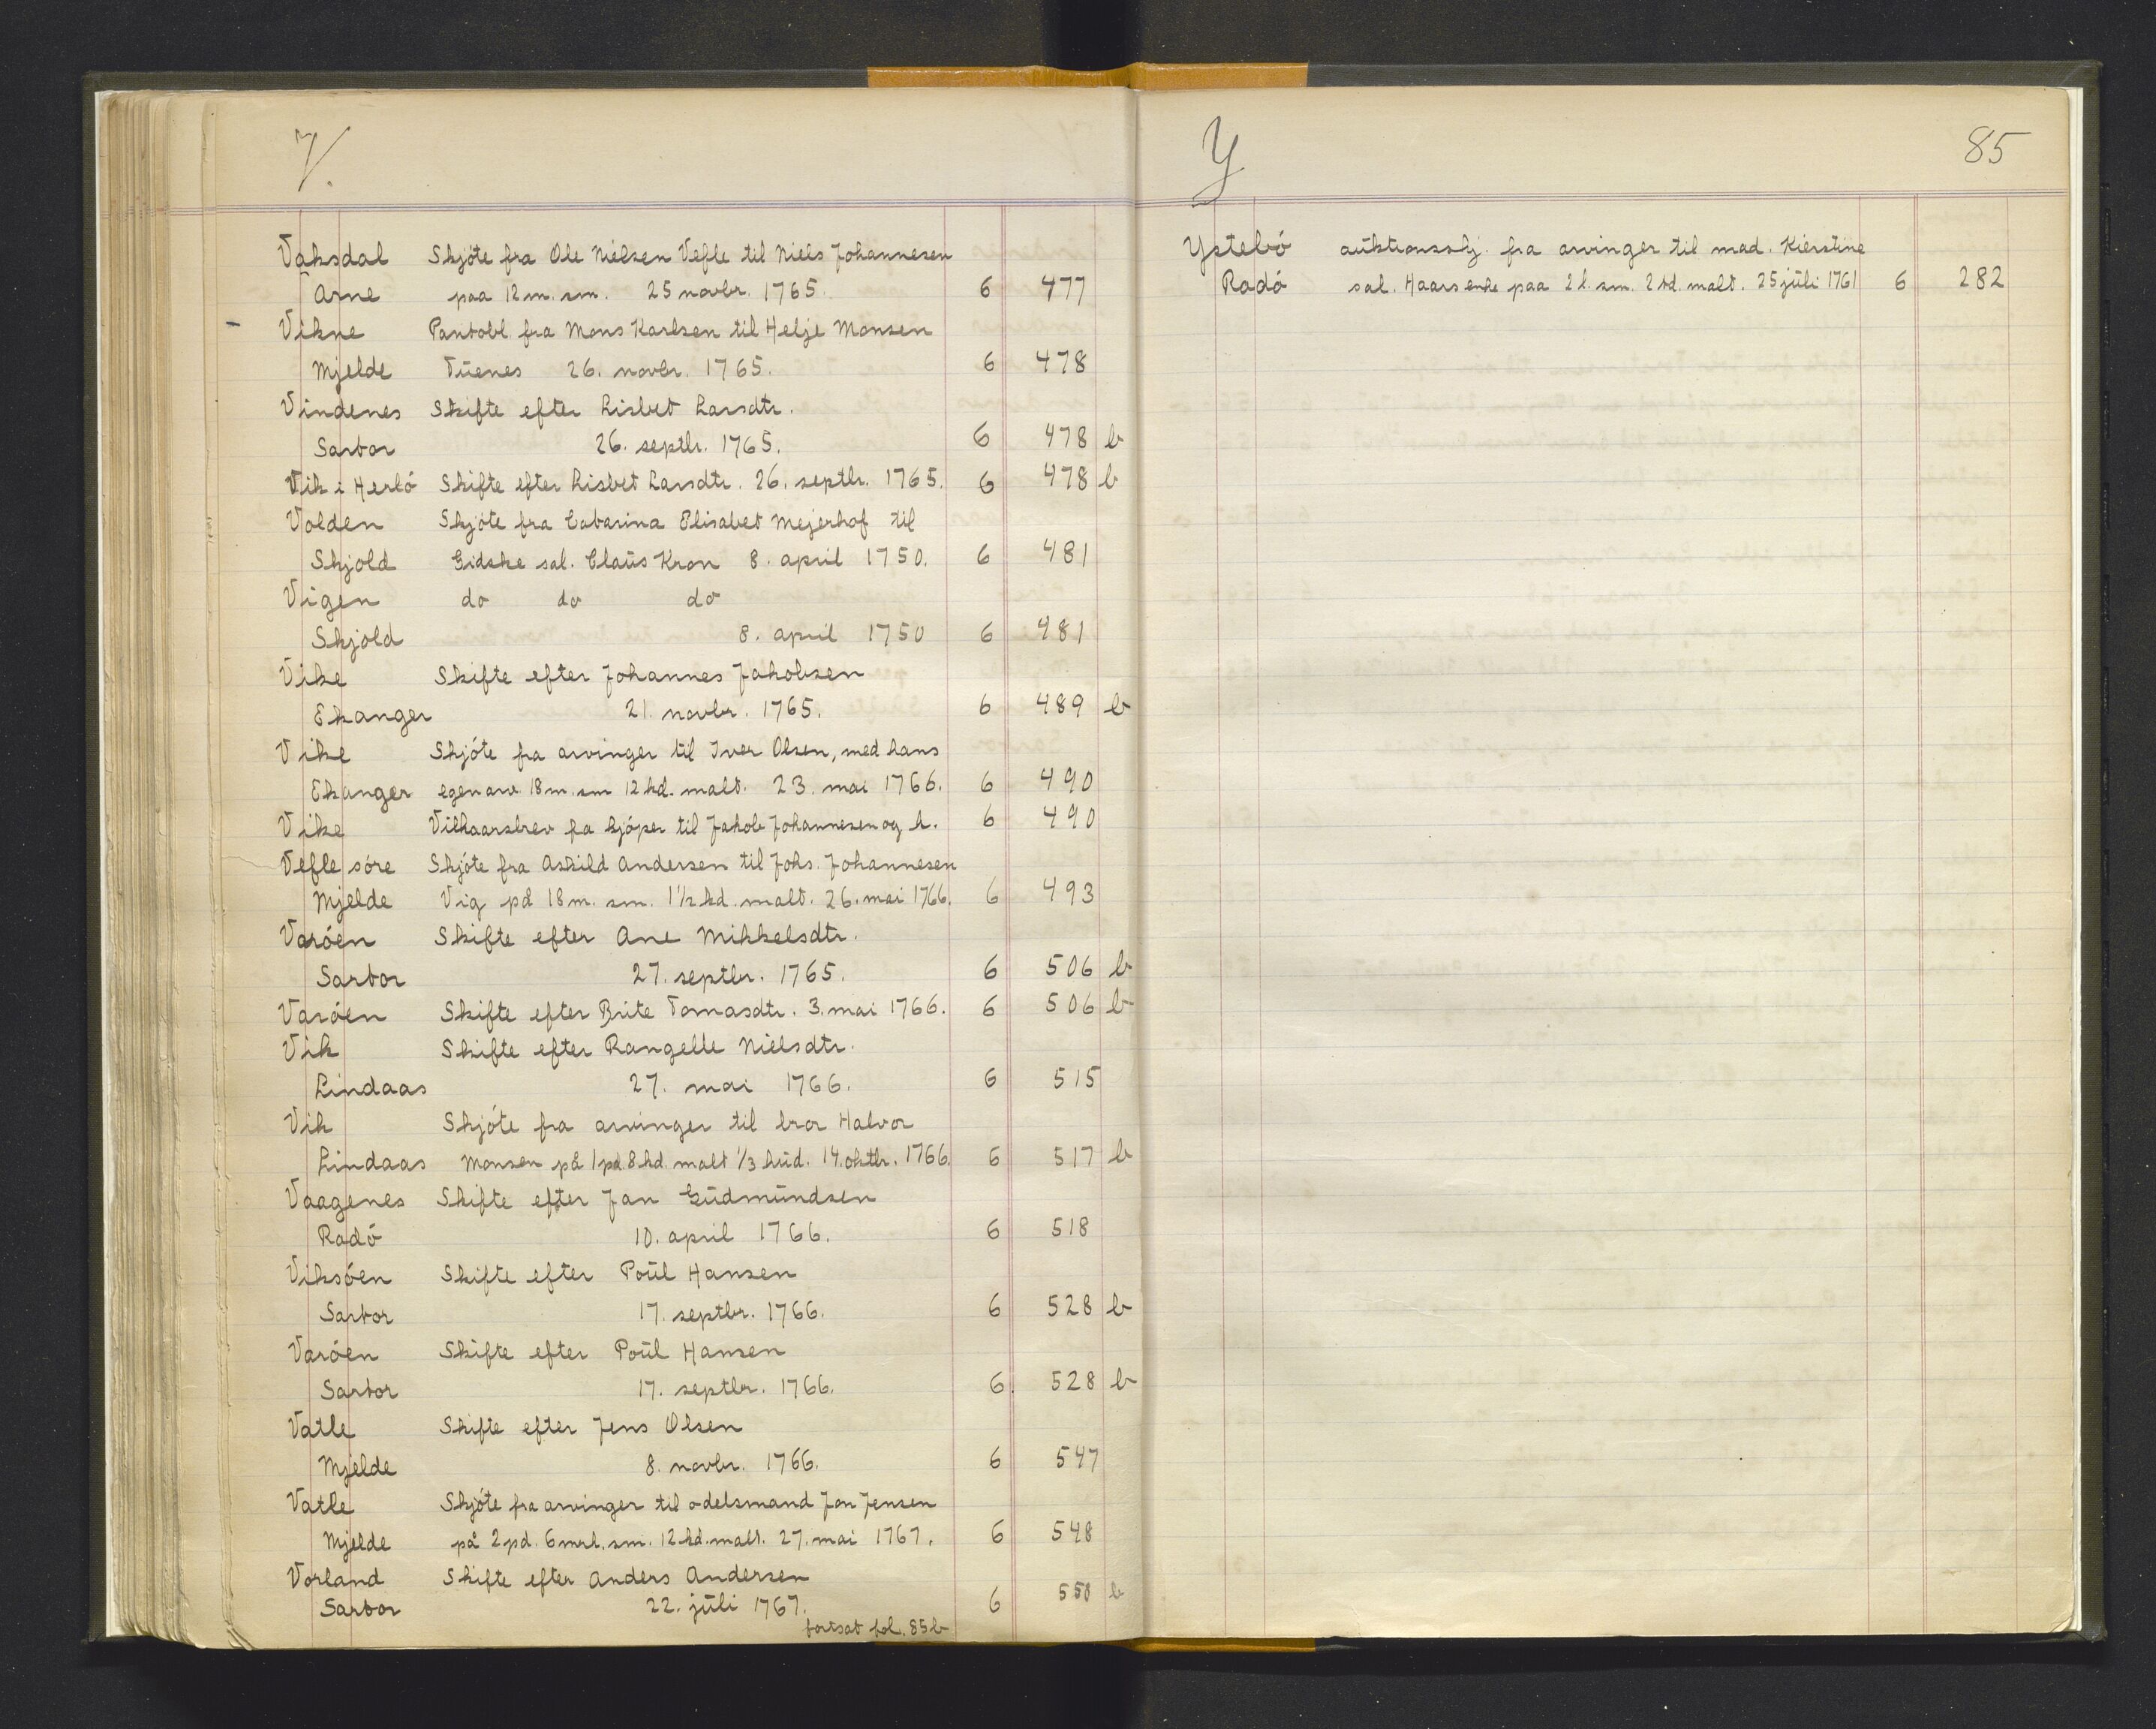 V.
Vaksdal Skjöte fra Ole Nielsen Vefle til Niels Johannesen
Arne paa 12 m. sm. 25 novbr. 1765. 6 477
Vikne Pantobl. fra Mons Karlsen til Helje Monsen
Mjelde Tüenes 26. novbr. 1765. 6 478
Vindenes Skifte efter Lisbet Larsdtr.
Sartor 26. septbr. 1765. 6 478 b
Vik i Herlö Skifte efter Lisbet Larsdtr. 26. septbr. 1765. 6 478 b
Volden Skjöte fra Catarina Elisabet Mejerhof til
Skjold Gidske sal. Claüs Kron 8. april 1750. 6 481
Vigen do do do
Skjold 8. april 1750 6 481
Vike Skifte efter Johannes Jakobsen
Ekanger 21. novbr. 1765. 6 489 b
Vike Skjöte fra arvinger til Iver Olsen, med hans
Ekanger egen arv. 18 m. sm 12 kd. malt. 23. mai 1766. 6 490
Vike Vilkaarsbrev fra kjöper til Jakob Johannesen og h. 6 490
Vefle söre Skjöte fra Askild Andersen til Johs. Johannesen
Mjelde Vig på 18 m. sm. 1½ kd. malt. 26. mai 1766. 6 493
Varöen Skifte efter Ane Mikkelsdtr.
Sartor 27. septbr. 1765. 6 506 b
Varöen Skifte efter Brite Tomasdtr. 3. mai 1766. 6 506 b
Vik Skifte efter Rangelle Nielsdtr.
Lindaas 27. mai 1766. 6 515
Vik Skjöte fra arvinger til bror Halvor
Lindaas Monsen på 1 pd. 8 kd. malt 1/3 hüd. 14. oktbr. 1766. 6 517 b
Vaagenes Skifte efter Jan Güdmündsen
Radö 10. april 1766. 6 518
Viksöen Skifte efter Poül Hansen
Sartor 17. septbr. 1766. 6 528 b
Varöen Skifte efter Poül Hansen
Sartor 17. septbr. 1766. 6. 528 b
Vatle Skifte efter Jens Olsen
Mjelde 8. novbr. 1766. 6 547
Vatle Skjöte fra arvinger til odelsmand Jon Jensen
Mjelde på 2 pd. 6 mrk. sm. 12 kd. malt. 27. mai 1767. 6 548
Vorland Skifte efter Anders Andersen
Sartor 22. jüli 1767. 6 558 b
fortsat fol. 85 b
Y 85
Ystebö auktionsskj. fra arvinger til mad. Kierstine
Radö sal. Haars enke paa 2 l. sm. 2 td. malt. 25 jüli 1761 6 282